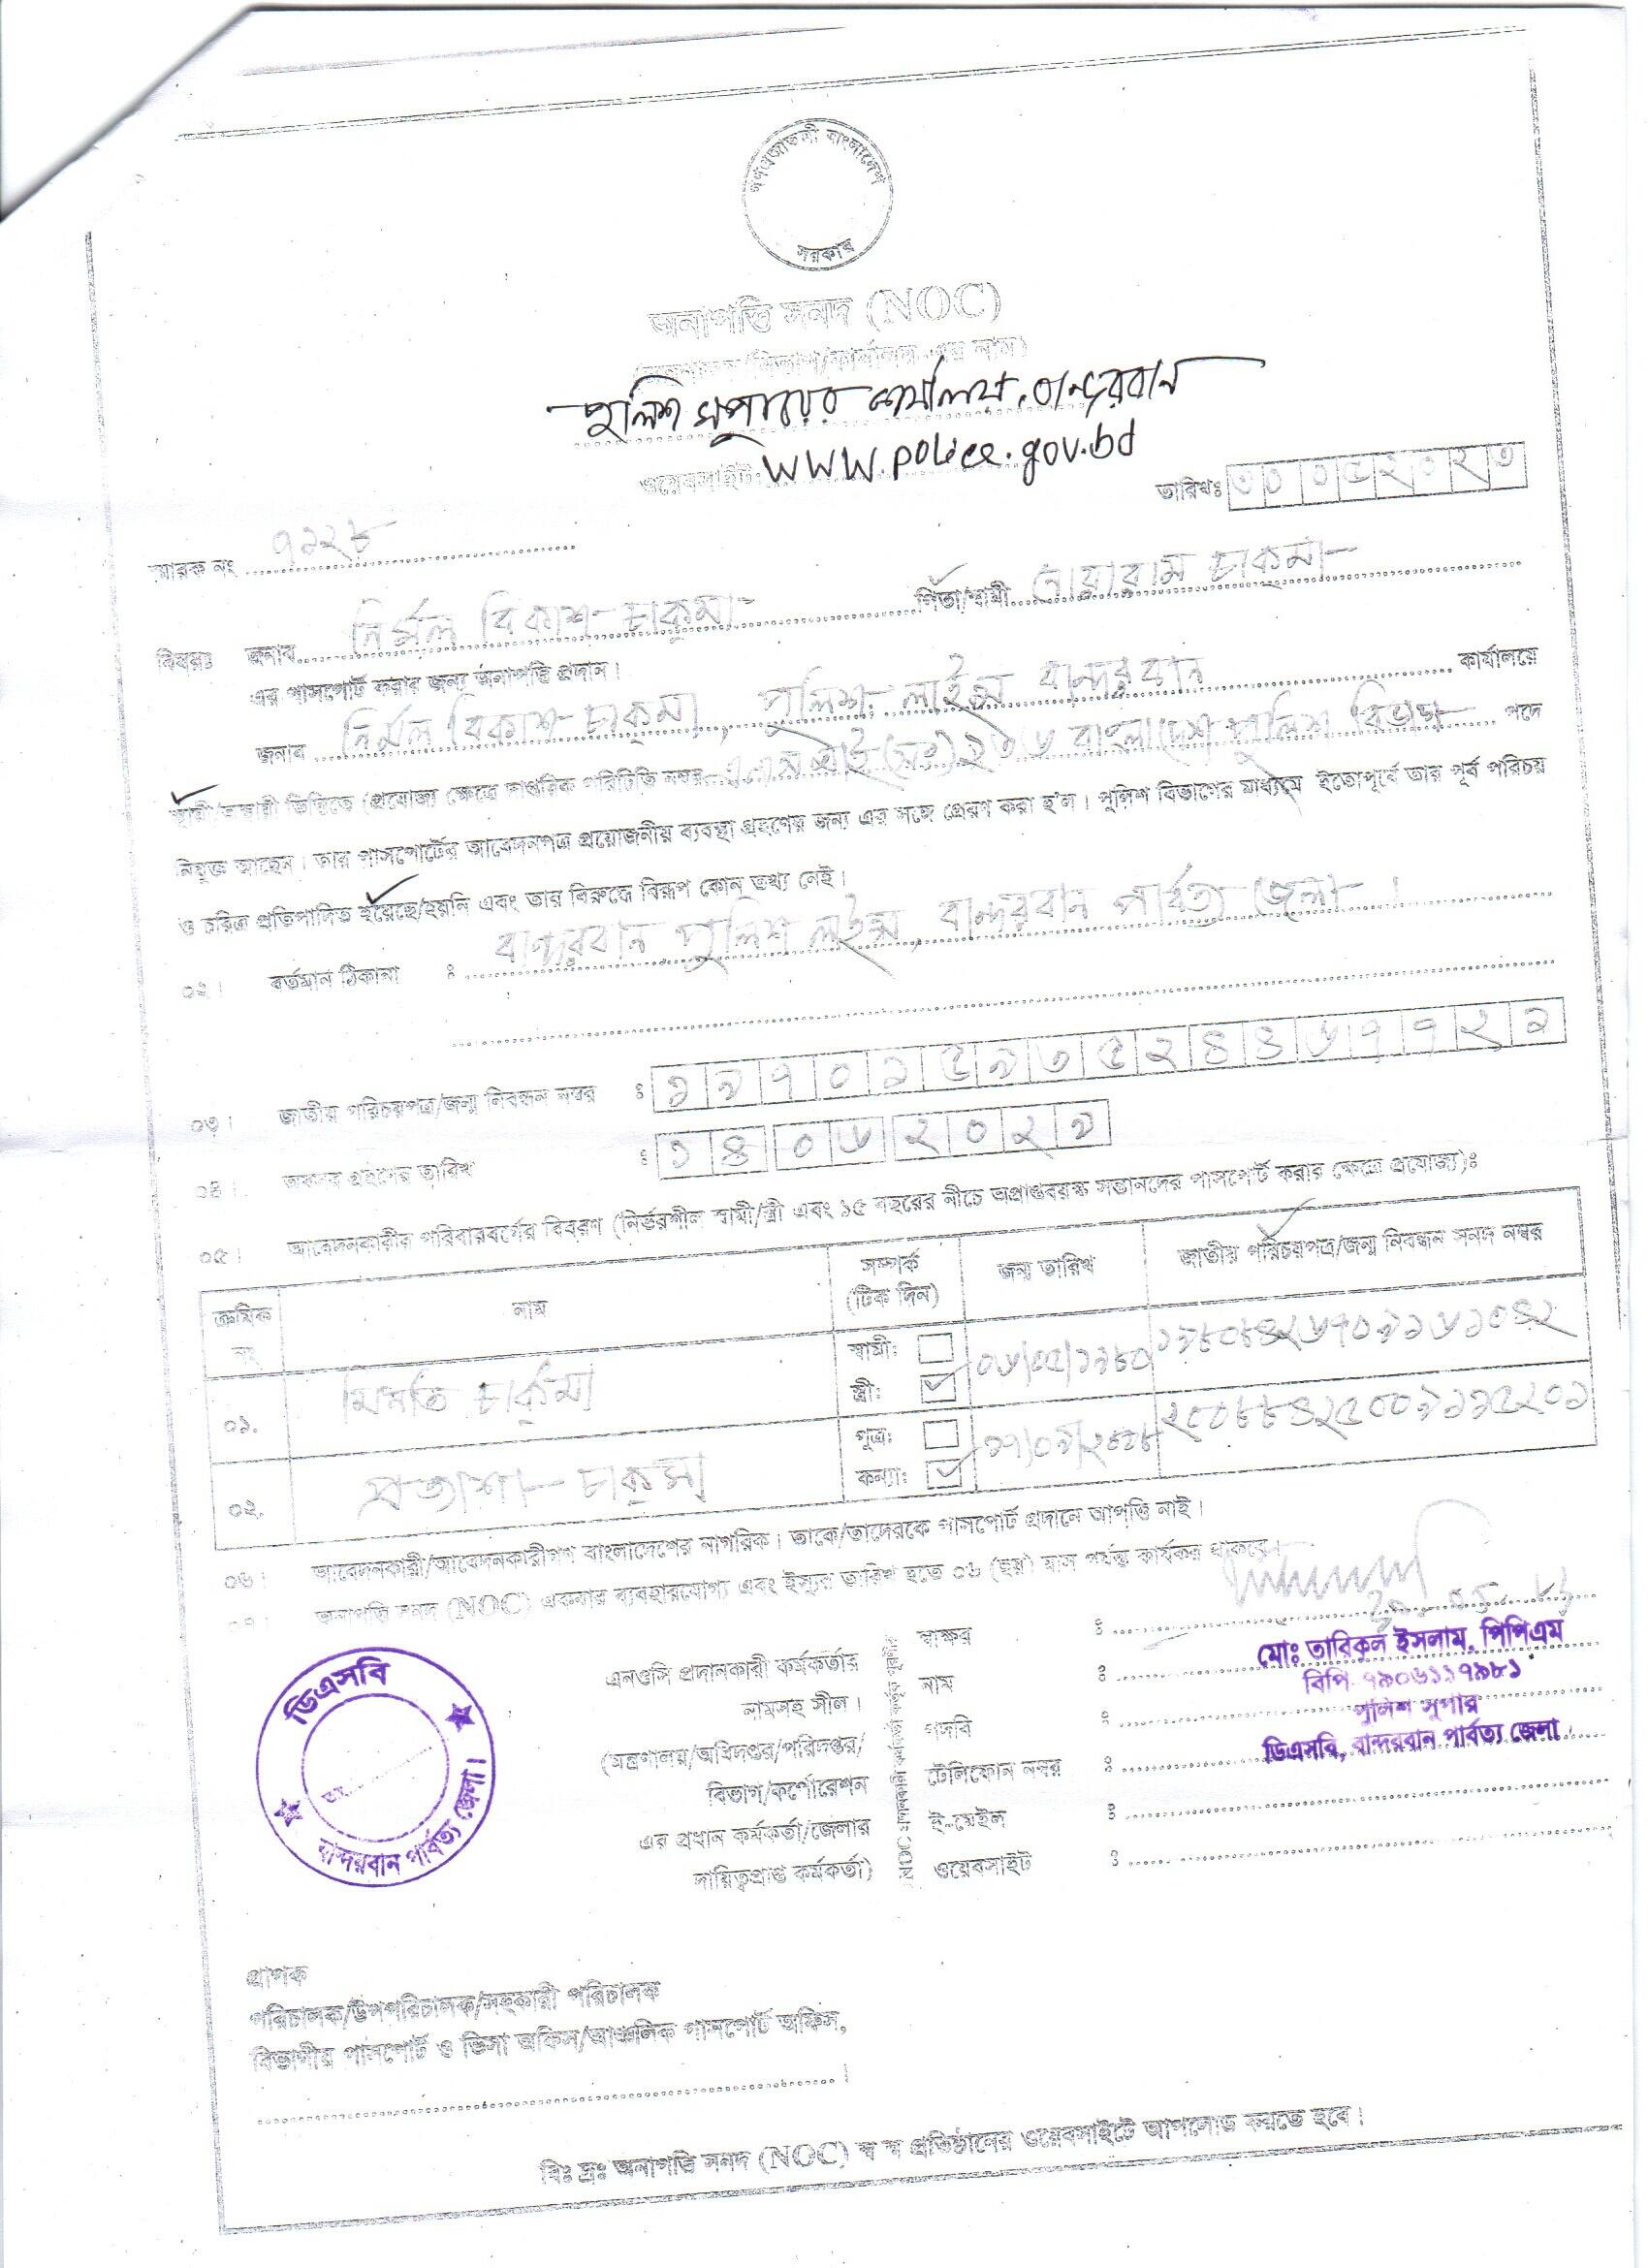 গণপ্রজাতন্ত্রী বাংলাদেশ
সরকার
অনাপত্তি সনদ (NOC)
পুলিশ সুপারের কার্যালয়, বান্দরবান
ওয়েবসাইট: www.police.gov.bd
তারিখঃ ৩০ ০৫ ২০২৩
স্মারক নং ৭১২৮
বিষয়ঃ জনাব নির্মল বিকাশ চাকমা পিতা/স্বামী চাকমা
এর পাসপোর্ট করার জন্য অনাপত্তি প্রদান।
জনাব নির্মল বিকাশ চাকমা, পুলিশ লাইন্স বান্দরবান কার্যালয়ে
স্থায়ী/অস্থায়ী ভিত্তিতে (প্রযোজ্য ক্ষেত্রে দাপ্তরিক পরিচিতি নম্বর বাংলাদেশ পুলিশ বিভাগ পদে
নিযুক্ত আছেন। তার পাসপোর্টের আবেদনপত্র প্রয়োজনীয় ব্যবস্থা গ্রহণের জন্য এর সঙ্গে প্রেরণ করা হ'ল। পুলিশ বিভাগের মাধ্যমে ইতোপূর্বে তার পূর্ব পরিচয়
ও চরিত্র প্রতিপাদিত হয়েছে/হয়নি এবং তার বিরুদ্ধে বিরূপ কোন তথ্য নেই।
০২। বর্তমান ঠিকানা ঃ বান্দরবান পুলিশ লাইন্স, বান্দরবান পার্বত্য জেলা।
০৩। জাতীয় পরিচয়পত্র/জন্ম নিবন্ধন নম্বর ঃ ১৯৭০১৫৯৩৫২৪৪৬৭৭২১
০৪। অবসর গ্রহণের তারিখ ঃ ১৪ ০৬ ২০২৯
০৫। আবেদনকারীর পরিবারবর্গের বিবরণ (নির্ভরশীল স্বামী/স্ত্রী এবং ১৫ বছরের নীচে অপ্রাপ্তবয়স্ক সন্তানদের পাসপোর্ট করার ক্ষেত্রে প্রযোজ্য)ঃ
ক্রমিক নং নাম সম্পর্ক (টিক দিন) জন্ম তারিখ জাতীয় পরিচয়পত্র/জন্ম নিবন্ধন সনদ নম্বর
০১. মিনতি চাকমা স্বামী: স্ত্রী: ০৬/০৫/১৯৮০
০২. প্রত্যাশা চাকমা পুত্র: কন্যা:
০৬। আবেদনকারী/আবেদনকারীগণ বাংলাদেশের নাগরিক। তাকে/তাদেরকে পাসপোর্ট প্রদানে আপত্তি নাই।
০৭। অনাপত্তি সনদ (NOC) একবার ব্যবহারযোগ্য এবং ইস্যুর তারিখ হতে ০৬ (ছয়) মাস পর্যন্ত কার্যকর থাকবে।
ডিএসবি
বান্দরবান পার্বত্য জেলা।
এনওসি প্রদানকারী কর্মকর্তার
নামসহ সীল।
(মন্ত্রণালয়/অধিদপ্তর/পরিদপ্তর/
বিভাগ/কর্পোরেশন
এর প্রধান কর্মকর্তা/জেলার
দায়িত্বপ্রাপ্ত কর্মকর্তা)
স্বাক্ষর ঃ
নাম ঃ
পদবি ঃ
টেলিফোন নম্বর ঃ
ই-মেইল ঃ
ওয়েবসাইট ঃ
মোঃ তারিকুল ইসলাম, পিপিএম
বিপি-৭৯০৬১১৭৯৮১
পুলিশ সুপার
ডিএসবি, বান্দরবান পার্বত্য জেলা।
প্রাপক
পরিচালক/উপপরিচালক/সহকারী পরিচালক
বিভাগীয় পাসপোর্ট ও ভিসা অফিস/আঞ্চলিক পাসপোর্ট অফিস,
বিঃ দ্রঃ অনাপত্তি সনদ (NOC) স্ব স্ব প্রতিষ্ঠানের ওয়েবসাইটে আপলোড করতে হবে।